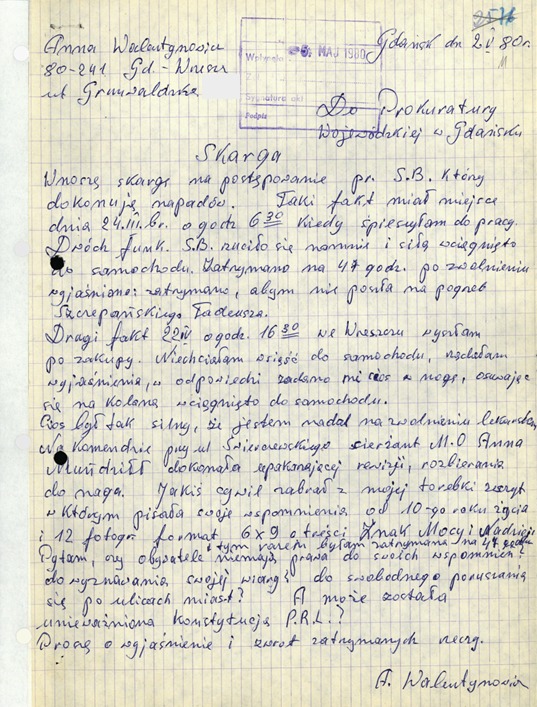 25 76
Anna Walentynowicz
80-241 Gd-Wrzeszcz
ul Grunwaldzka
Gdańsk dn 2.V.80r.
Wpłynęło 05. MAJ 1980
Sygnatura akt
Podpis
Do Prokuratury
Wojewódzkiej w Gdańsku
Skarga
Wnoszę skargę na postępowanie pr. S.B. który
dokonują napadów. Taki fakt miał miejsce
dnia 24.III.br. o godz 6 30 kiedy śpieszyłam do pracy.
Dwóch funk. S.B. rzuciło się namnie i siłą wciągnięto
do samochodu. Zatrzymano na 47 godz. po zwolnieniu
wyjaśniono: zatrzymano, abym nie poszła na pogrzeb
Szczepańskiego Tadeusza.
Drugi fakt 22 IV o godz. 16 30 we Wrzeszczu wyszłam
po zakupy. Niechciałam wsiąść do samochodu, rządałam
wyjaśnienia, w odpowiedzi zadano mi cios w nogę, osuwając
się na kolana wciągnięto do samochodu.
Cios był tak silny, że jestem nadal na zwolnieniu lekarskim
Na Komendzie przy ul Świerczewskiego sierżant M.O Anna
dokonała upakarzającej rewizji, rozbierania
do naga. Jakiś cywil zabrał z mojej torebki zeszyt
w którym pisała swoje wspomnienia od 10-go roku życia
i 12 fotogr. format 6x9 o treści Znak Mocy i Nadziei
tym razem byłam zatrzymana na
Pytam, czy obywatele niemają prawa do swoich wspomnień?
do wyznawania swojej wiary? do swobodnego poruszania
się po ulicach miast? A może została
unieważniona Konstytucja P.R.L.?
Proszę o wyjaśnienie i zwrot zatrzymanych rzeczy.
A. Walentynowicz